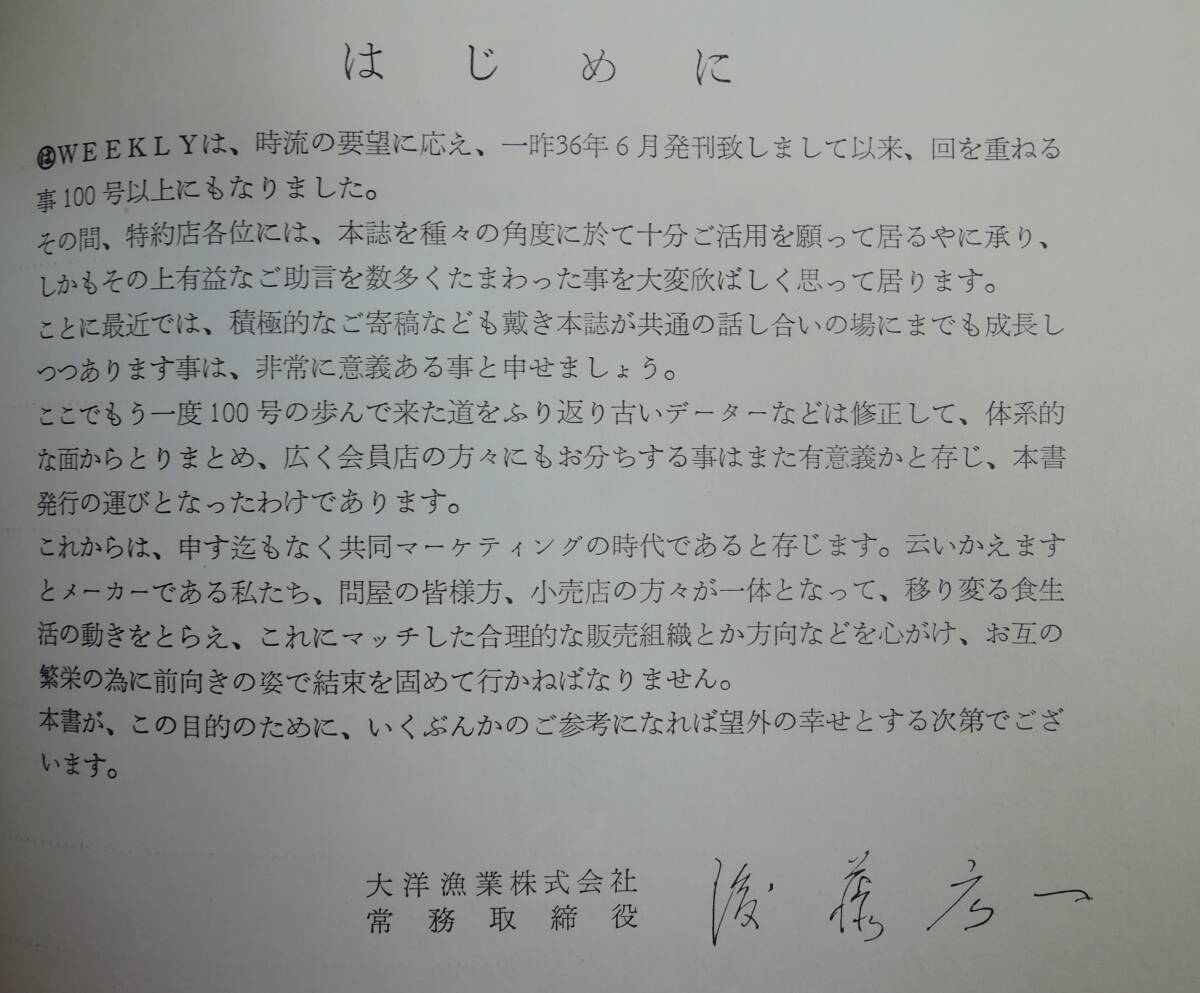 はじめに
㋩WEEKLYは、時流の要望に応え、一昨36年6月発刊致しまして以来、回を重ねる
事100号以上にもなりました。
その間、特約店各位には、本誌を種々の角度に於て十分ご活用を願って居るやに承り、
しかもその上有益なご助言を数多くたまわった事を大変欣ばしく思って居ります。
ことに最近では、積極的なご寄稿なども戴き本誌が共通の話し合いの場にまでも成長し
つつあります事は、非常に意義ある事と申せましょう。
ここでもう一度100号の歩んで来た道をふり返り古いデーターなどは修正して、体系的
な面からとりまとめ、広く会員店の方々にもお分ちする事はまた有意義かと存じ、本書
発行の運びとなったわけであります。
これからは、申す迄もなく共同マーケティングの時代であると存じます。云いかえます
とメーカーである私たち、問屋の皆様方、小売店の方々が一体となって、移り変る食生
活の動きをとらえ、これにマッチした合理的な販売組織とか方向などを心がけ、お互の
繁栄の為に前向きの姿で結束を固めて行かねばなりません。
本書が、この目的のために、いくぶんかのご参考になれば望外の幸せとする次第でござ
います。
大洋漁業株式会社
常務取締役 後藤 一